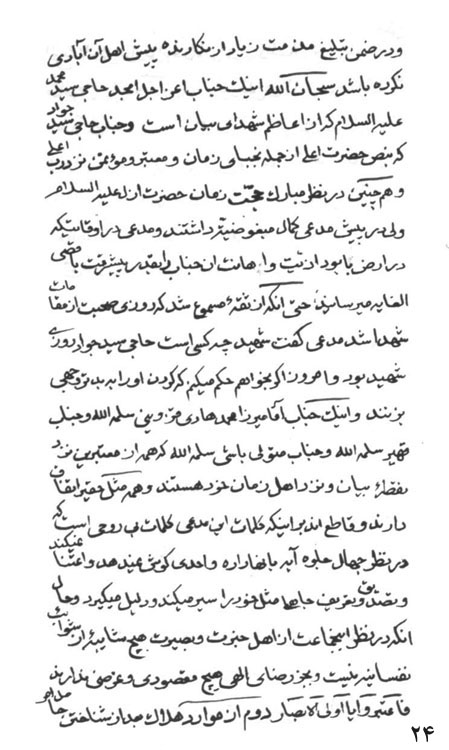 و در ضمن تبلیغ مذمت زیاد از نگارنده پیش اهل آن آبادی
نکرده باشد سبحان الله اینک جناب اعز اجل امجد حاجی سید محمد
علیه السلام که از اعاظم شهدای بیان است و جناب حاجی سید جواد
که بنص حضرت اعلی از جمله نجبای زمان و معتبر و مؤتمن نزد رب اعلی
و همچنین در نظر مبارک حجت زمان حضرت ازل علیه السلام
ولی در پیش مدعی کمال مبغوضیت داشتند و مدعی در اوقاتیکه
در ارض با بود اذیت و اهانت آن جناب را بقدر پیشرفت با قصی
الغایه میرسانید حتی آنکه از ثقهٔ مسموع شد که روزی صحبت از مقامات
شهدا شد مدعی گفت شهید چه کسی است حاجی سید جواد روزی
شهید بود و امروز اگر بخواهم حکم میکنم که گردن او را به بدتر وجهی
بزنند و اینک جناب آقا میرزا محمد هادی قزوینی سلمه الله و جناب
قهیر سلمه الله و جناب متولی باشی سلمه الله که همه از معتبرین نزد
نقطهٔ بیان و نزد اهل زمان خود هستند و همه مثل حقیر اتفاق
دارند و قاطع اند بر اینکه کلمات این مدعی کلمات بی روحی است که
در نظر جهال جلوه آیه با بهاء داره واحدی گوش نمیدهد و اعتنا نمیکند
و تصدیق و تعریف جاهل مثل خود را سیر میکند و دلیل میگیرد و حال
آنکه در نظر اینجماعت از اهل خبرت و بصیرت هیچ شایبهٔ از شوائب
نفسانیه نیست و بجز رضای الهی هیچ مقصودی و غرضی ندارند
فاعتبروا یا اولی الابصار دوم از موارد هلاک مدار شناختن
۲۴